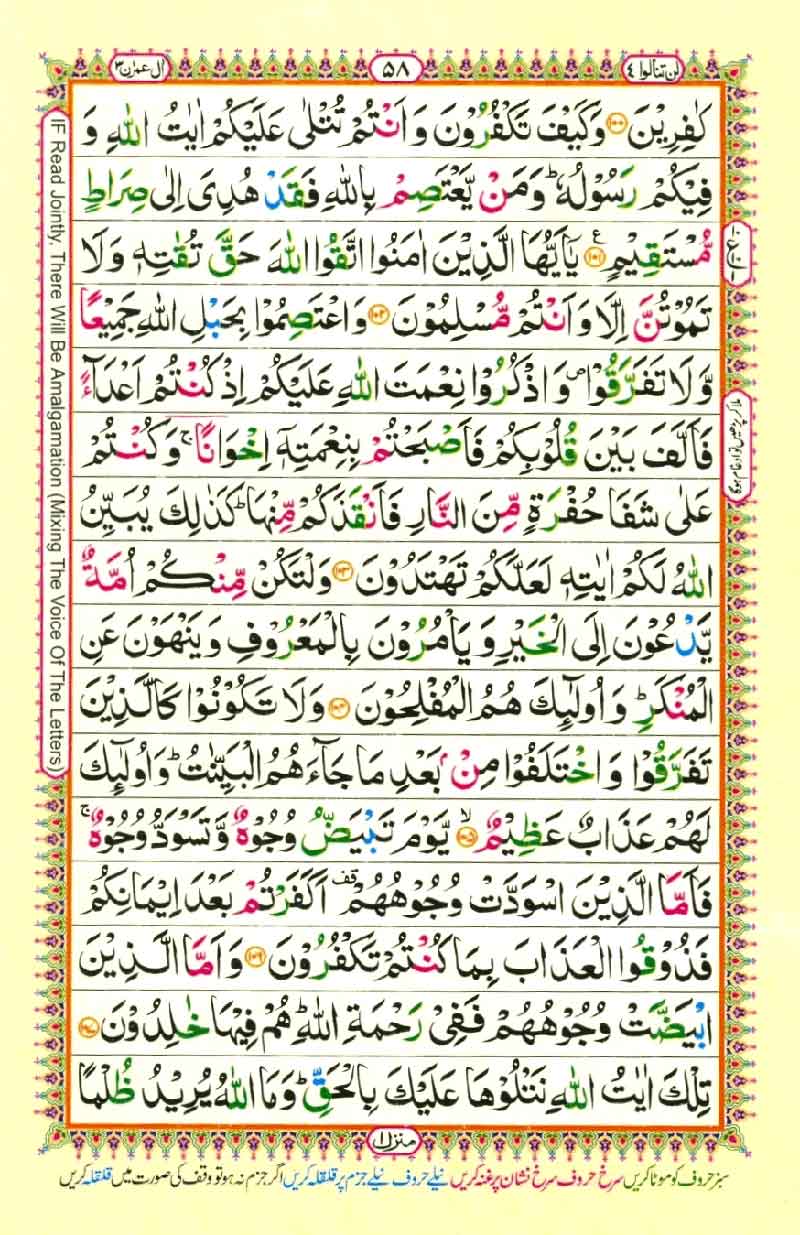 لن تنالوا ٤
٥٨
ال عمرٰن ٣
كٰفِرِيْنَ ۝١٠٠ وَكَيْفَ تَكْفُرُوْنَ وَاَنْتُمْ تُتْلٰى عَلَيْكُمْ اٰيٰتُ اللّٰهِ وَ
فِيْكُمْ رَسُوْلُهٗ ؕ وَمَنْ يَّعْتَصِمْ بِاللّٰهِ فَقَدْ هُدِىَ اِلٰى صِرَاطٍ
مُّسْتَقِيْمٍ ۝١٠١ ع يٰٓاَيُّهَا الَّذِيْنَ اٰمَنُوا اتَّقُوا اللّٰهَ حَقَّ تُقٰتِهٖ وَلَا
تَمُوْتُنَّ اِلَّا وَاَنْتُمْ مُّسْلِمُوْنَ ۝١٠٢ وَاعْتَصِمُوْا بِحَبْلِ اللّٰهِ جَمِيْعًا
وَّلَا تَفَرَّقُوْا ۪ وَاذْكُرُوْا نِعْمَتَ اللّٰهِ عَلَيْكُمْ اِذْ كُنْتُمْ اَعْدَآءً
فَاَلَّفَ بَيْنَ قُلُوْبِكُمْ فَاَصْبَحْتُمْ بِنِعْمَتِهٖٓ اِخْوَانًا ۚ وَكُنْتُمْ
عَلٰى شَفَا حُفْرَةٍ مِّنَ النَّارِ فَاَنْقَذَكُمْ مِّنْهَا ؕ كَذٰلِكَ يُبَيِّنُ
اللّٰهُ لَكُمْ اٰيٰتِهٖ لَعَلَّكُمْ تَهْتَدُوْنَ ۝١٠٣ وَلْتَكُنْ مِّنْكُمْ اُمَّةٌ
يَّدْعُوْنَ اِلَى الْخَيْرِ وَيَاْمُرُوْنَ بِالْمَعْرُوْفِ وَيَنْهَوْنَ عَنِ
الْمُنْكَرِ ؕ وَاُولٰٓئِكَ هُمُ الْمُفْلِحُوْنَ ۝١٠٤ وَلَا تَكُوْنُوْا كَالَّذِيْنَ
تَفَرَّقُوْا وَاخْتَلَفُوْا مِنْۢ بَعْدِ مَا جَآءَهُمُ الْبَيِّنٰتُ ؕ وَاُولٰٓئِكَ
لَهُمْ عَذَابٌ عَظِيْمٌ ۙ۝١٠٥ يَّوْمَ تَبْيَضُّ وُجُوْهٌ وَّتَسْوَدُّ وُجُوْهٌ ۚ
فَاَمَّا الَّذِيْنَ اسْوَدَّتْ وُجُوْهُهُمْ قف اَكَفَرْتُمْ بَعْدَ اِيْمَانِكُمْ
فَذُوْقُوا الْعَذَابَ بِمَا كُنْتُمْ تَكْفُرُوْنَ ۝١٠٦ وَاَمَّا الَّذِيْنَ
ابْيَضَّتْ وُجُوْهُهُمْ فَفِىْ رَحْمَةِ اللّٰهِ ؕ هُمْ فِيْهَا خٰلِدُوْنَ ۝١٠٧
تِلْكَ اٰيٰتُ اللّٰهِ نَتْلُوْهَا عَلَيْكَ بِالْحَقِّ ؕ وَمَا اللّٰهُ يُرِيْدُ ظُلْمًا
ملا کر پڑھیں تو ادغام ہوگا
IF Read Jointly, There Will Be Amalgamation (Mixing The Voice Of The Letters)
منزل ١
سبز حروف کو موٹا کریں سرخ حروف سرخ نشان پر غنہ کریں نیلے حروف نیلے جزم پر قلقلہ کریں اگر جزم نہ ہو تو وقف کی صورت میں قلقلہ کریں